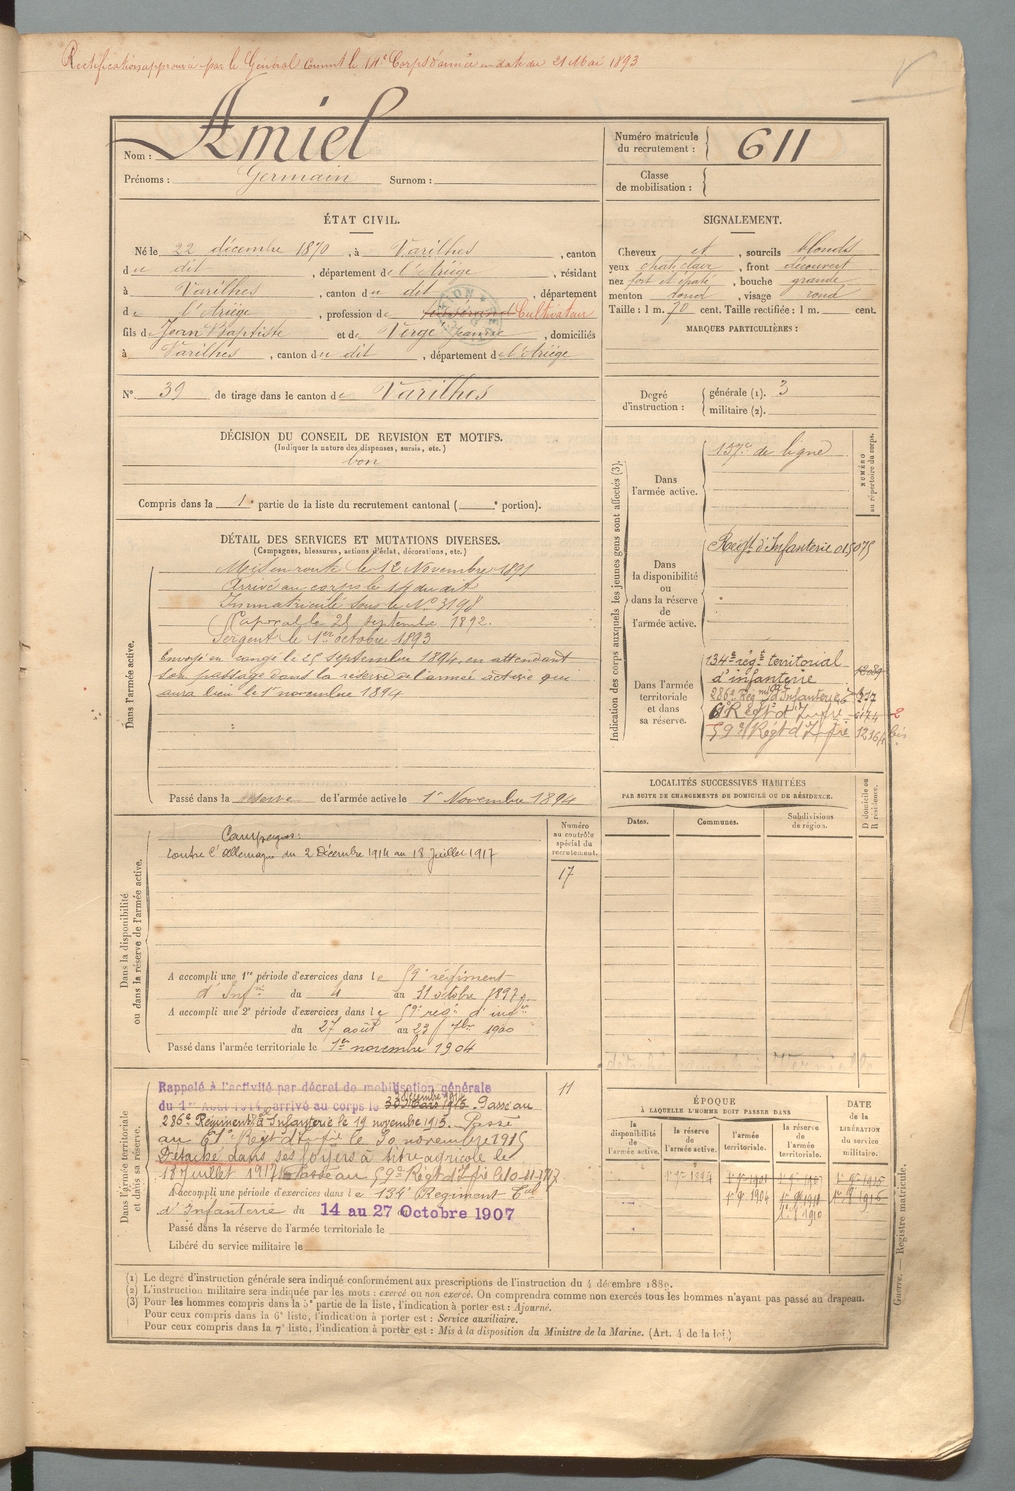 Rectification approuvé par le Général Commt le 17e Corps d'armée en date du 21 Mai 1893
Nom : Amiel
Prénoms : Germain Surnom :
Numéro matricule du recrutement : 611
Classe de mobilisation :
ÉTAT CIVIL.
Né le 22 décembre 1870, à Varilhes, canton
du dit, département de l'Ariège, résidant
à Varilhes, canton du dit, département
de l'Ariège, profession de Cultivateur
fils de Jean Baptiste et de Verge Jeanne, domiciliés
à Varilhes, canton du dit, département de l'Ariège
N° 39 de tirage dans le canton de Varilhes
SIGNALEMENT.
Cheveux et, sourcils blonds
yeux chat. clair, front découvert
nez fort et épaté, bouche grande
menton rond, visage rond
Taille : 1 m. 70 cent. Taille rectifiée : 1 m. cent.
MARQUES PARTICULIÈRES :
Degré d'instruction : générale (1). 3
militaire (2).
DÉCISION DU CONSEIL DE REVISION ET MOTIFS.
(Indiquer la nature des dispenses, sursis, etc.)
bon
Compris dans la 1e partie de la liste du recrutement cantonal ( e portion).
DÉTAIL DES SERVICES ET MUTATIONS DIVERSES.
(Campagnes, blessures, actions d'éclat, décorations, etc.)
Dans l'armée active.
Mis en route le 12 Novembre 1891
Arrivé au corps le 14 du dit
Immatriculé sous le N° 3198
Caporal le 25 septembre 1892.
Sergent le 1er octobre 1893
Envoyé en congé le 25 septembre 1894, en attendant
son passage dans la réserve de l'armée active qui
aura lieu le 1er novembre 1894
Passé dans la réserve de l'armée active le 1er Novembre 1894
Indication des corps auxquels les jeunes gens sont affectés (3).
NUMÉRO au répertoire du corps.
Dans l'armée active.
137e de ligne
Dans la disponibilité ou dans la réserve de l'armée active.
Regt d'Infanterie 015075
Dans l'armée territoriale et dans sa réserve.
134e régt territorial
d'infanterie
286e Reg d'Infanterie
61e Régt d'Infrie
59e Régt d'Infrie
LOCALITÉS SUCCESSIVES HABITÉES
PAR SUITE DE CHANGEMENTS DE DOMICILE OU DE RÉSIDENCE.
Dates. Communes. Subdivisions de région. D domicile ou R résidence.
Dans la disponibilité ou dans la réserve de l'armée active.
Numéro au contrôle spécial du recrutement.
17
Campagnes :
contre l'Allemagne du 2 Décembre 1914 au 18 Juillet 1917
A accompli une 1re période d'exercices dans le 59e régiment
d'Infie du 4 au 31 octobre 1897
A accompli une 2e période d'exercices dans le 59e régt d'infie
du 27 août au 23 7bre 1900
Passé dans l'armée territoriale le 1er novembre 1904
Dans l'armée territoriale et dans sa réserve.
11
Rappelé à l'activité par décret de mobilisation générale
2 décembre 1914
du 1er Août 1914, arrivé au corps le 30 Mars 1915. Passé au
286e Régiment d'Infanterie le 19 novembre 1915. Passé
au 61e Régt d'Infrie le 30 novembre 1915
Détaché dans ses foyers à titre agricole le
18 Juillet 1917. Passé au 59e Régt d'Infrie le 10-11-1917
A accompli une période d'exercices dans le 134e Régiment Tal
d'Infanterie du 14 au 27 Octobre 1907
Passé dans la réserve de l'armée territoriale le
Libéré du service militaire le
ÉPOQUE
À LAQUELLE L'HOMME DOIT PASSER DANS
DATE de la LIBÉRATION du service militaire.
la disponibilité de l'armée active. la réserve de l'armée active. l'armée territoriale. la réserve de l'armée territoriale.
(1) Le degré d'instruction générale sera indiqué conformément aux prescriptions de l'instruction du 4 décembre 1889.
(2) L'instruction militaire sera indiquée par les mots : exercé ou non exercé. On comprendra comme non exercés tous les hommes n'ayant pas passé au drapeau.
(3) Pour les hommes compris dans la 5e partie de la liste, l'indication à porter est : Ajourné.
Pour ceux compris dans la 6e liste, l'indication à porter est : Service auxiliaire.
Pour ceux compris dans la 7e liste, l'indication à porter est : Mis à la disposition du Ministre de la Marine. (Art. 4 de la loi.)
Guerre. — Registre matricule.